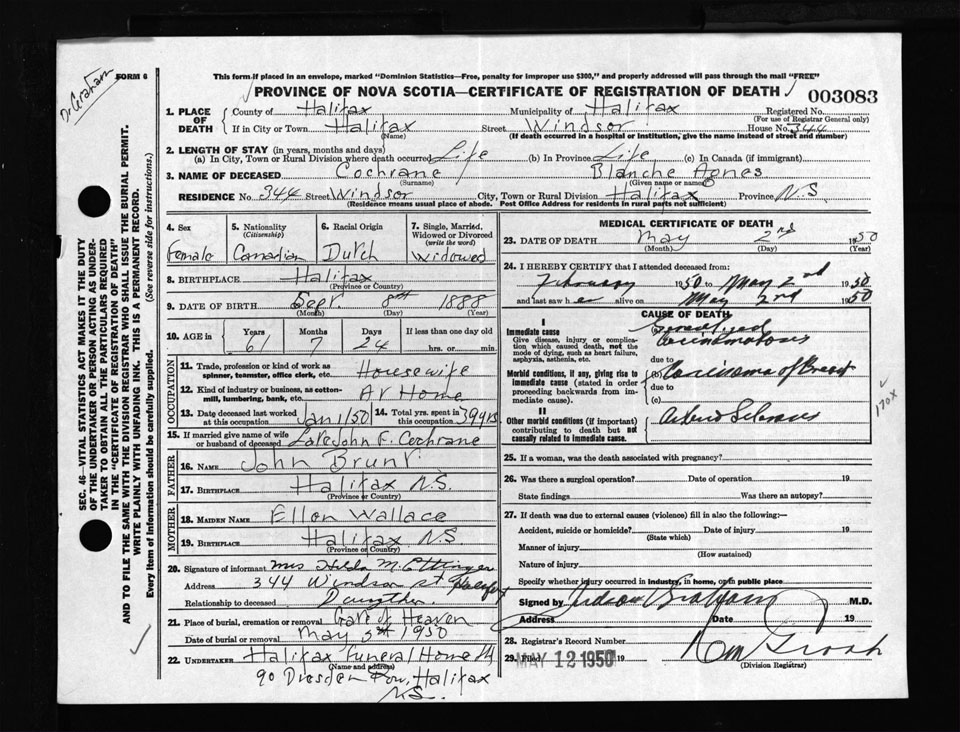 Dr Graham
FORM 6
This form if placed in an envelope, marked "Dominion Statistics—Free, penalty for improper use $300," and properly addressed will pass through the mail "FREE"
PROVINCE OF NOVA SCOTIA—CERTIFICATE OF REGISTRATION OF DEATH
003083
1. PLACE OF DEATH
County of Halifax Municipality of Halifax Registered No.
(For use of Registrar General only)
If in City or Town Halifax Street Windsor House No. 344
(Name) (If death occurred in a hospital or institution, give the name instead of street and number)
2. LENGTH OF STAY (in years, months and days)
(a) In City, Town or Rural Division where death occurred Life (b) In Province Life (c) In Canada (if immigrant)
3. NAME OF DECEASED Cochrane Blanche Agnes
(Surname) (Given name or names)
RESIDENCE No. 344 Street Windsor City, Town or Rural Division Halifax Province N.S
(Residence means usual place of abode. Post Office Address for residents in rural parts not sufficient)
SEC. 46—VITAL STATISTICS ACT MAKES IT THE DUTY
OF THE UNDERTAKER OR PERSON ACTING AS UNDER-
TAKER TO OBTAIN ALL THE PARTICULARS REQUIRED
IN THE "CERTIFICATE OF REGISTRATION OF DEATH"
AND TO FILE THE SAME WITH THE DIVISION REGISTRAR WHO SHALL ISSUE THE BURIAL PERMIT.
WRITE PLAINLY WITH UNFADING INK. THIS IS A PERMANENT RECORD.
Every item of Information should be carefully supplied. (See reverse side for instructions.)
4. Sex 5. Nationality (Citizenship) 6. Racial Origin 7. Single, Married, Widowed or Divorced (write the word)
Female Canadian Dutch Widowed
8. BIRTHPLACE Halifax
(Province or Country)
9. DATE OF BIRTH Sept. 8th 1888
(Month) (Day) (Year)
10. AGE in Years Months Days If less than one day old
61 7 24 hrs. or min.
OCCUPATION
11. Trade, profession or kind of work as spinner, teamster, office clerk, etc. Housewife
12. Kind of industry or business, as cotton-mill, lumbering, bank, etc. At Home
13. Date deceased last worked at this occupation Jan 1/50 14. Total yrs. spent in this occupation 39 yrs
15. If married give name of wife or husband of deceased Late John F. Cochrane
FATHER
16. NAME John Brunt
17. BIRTHPLACE Halifax N.S.
(Province or Country)
MOTHER
18. MAIDEN NAME Ellen Wallace
19. BIRTHPLACE Halifax N.S.
(Province or Country)
20. Signature of informant Mrs Hilda M. Ettinger
Address 344 Windsor St Halifax
Relationship to deceased Daughter
21. Place of burial, cremation or removal Gate of Heaven
Date of burial or removal May 5th 1950
22. UNDERTAKER Halifax Funeral Home
(Name and address)
90 Dresden Row, Halifax
N.S.
MEDICAL CERTIFICATE OF DEATH
23. DATE OF DEATH May 2nd 1950
(Month) (Day) (Year)
24. I HEREBY CERTIFY that I attended deceased from:
February 1950 to May 2nd 1950
and last saw her alive on May 2nd 1950
CAUSE OF DEATH
I
Immediate cause
Give disease, injury or complication which caused death, not the mode of dying, such as heart failure, asphyxia, asthenia, etc.
(a) Generalized
Carcinomatosis
due to
Morbid conditions, if any, giving rise to immediate cause (stated in order proceeding backwards from immediate cause).
(b) Carcinoma of Breast
due to
(c)
170X
II
Other morbid conditions (if important) contributing to death but not causally related to immediate cause.
25. If a woman, was the death associated with pregnancy?
26. Was there a surgical operation? Date of operation 19
State findings Was there an autopsy?
27. If death was due to external causes (violence) fill in also the following:—
Accident, suicide or homicide? Date of injury 19
(State which)
Manner of injury
(How sustained)
Nature of injury
Specify whether injury occurred in industry, in home, or in public place
Signed by Judson Graham M.D.
Address Date 19
28. Registrar's Record Number
29. Filed MAY 12 1950 19
(Division Registrar)